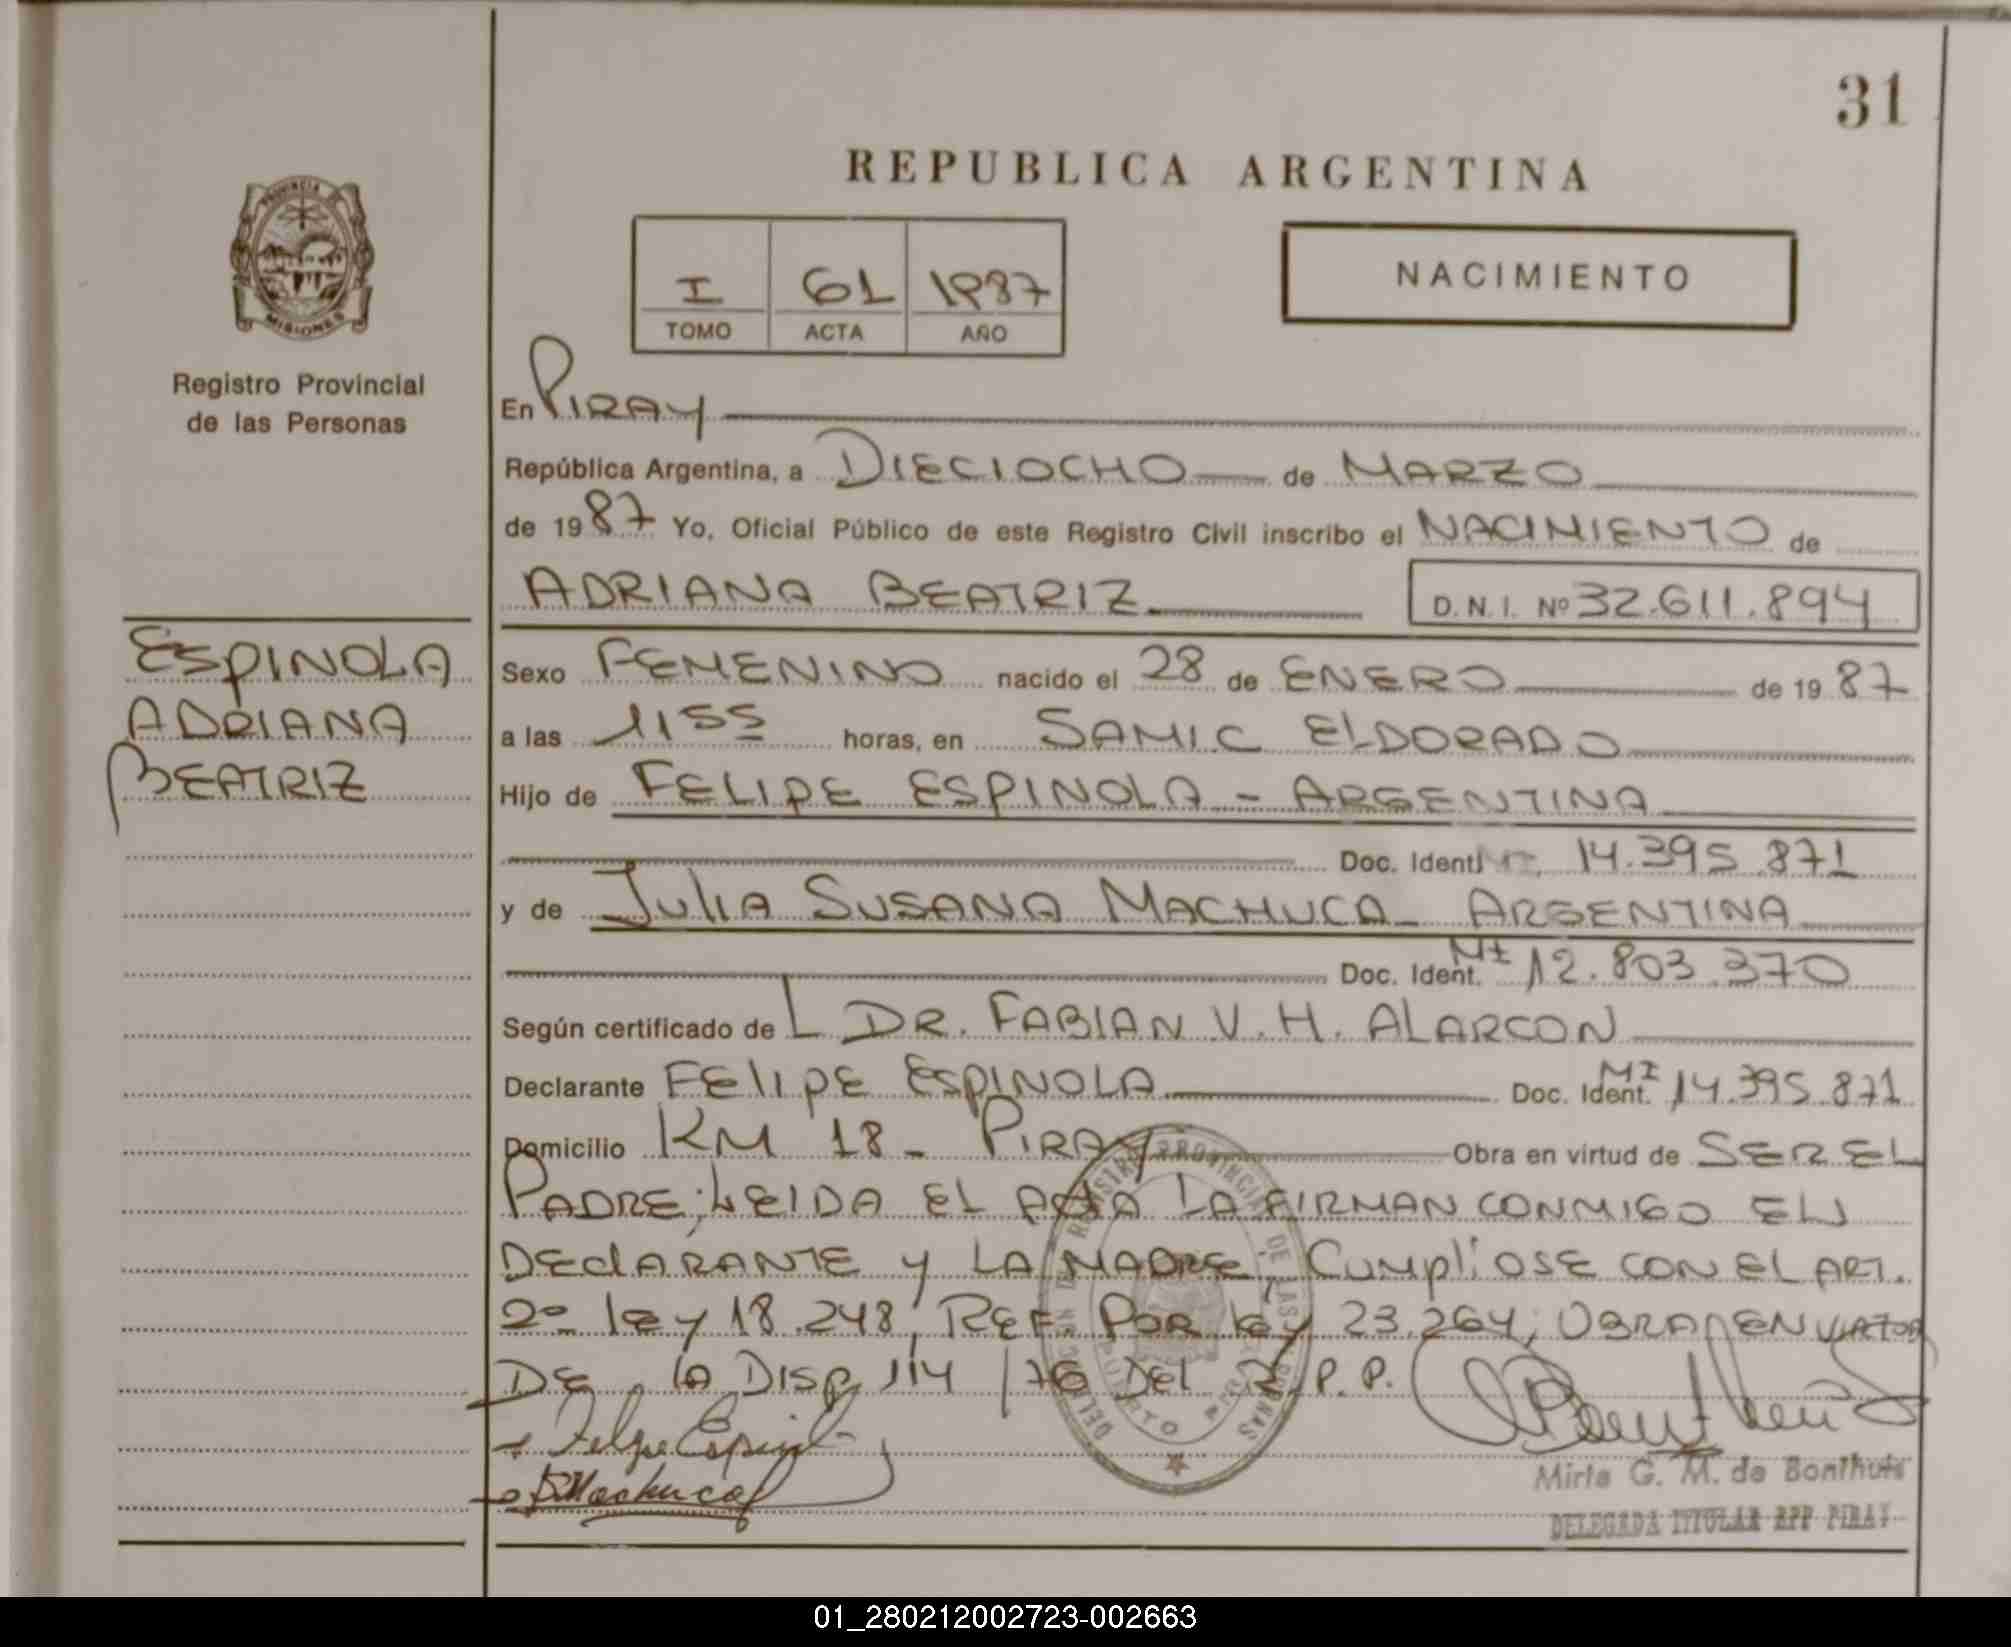 31
REPUBLICA ARGENTINA
PROVINCIA DE
MISIONES
Registro Provincial
de las Personas
I 61 1987
TOMO ACTA AÑO
NACIMIENTO
En PIRAY
República Argentina, a DIECIOCHO de MARZO
de 1987 Yo, Oficial Público de este Registro Civil inscribo el NACIMIENTO de
ADRIANA BEATRIZ D.N.I. Nº 32.611.894
ESPINOLA
ADRIANA
BEATRIZ
Sexo FEMENINO nacido el 28 de ENERO de 1987
a las 1155 horas, en SAMIC ELDORADO
Hijo de FELIPE ESPINOLA - ARGENTINA
Doc. Ident. MI 14.395.871
y de JULIA SUSANA MACHUCA - ARGENTINA
Doc. Ident. MI 12.803.370
Según certificado de L DR. FABIAN V. H. ALARCON
Declarante FELIPE ESPINOLA Doc. Ident. MI 14.395.871
Domicilio KM 18 - PIRAY Obra en virtud de SER EL
PADRE; LEIDA EL ACTA LA FIRMAN CONMIGO EL
DECLARANTE Y LA MADRE, CUMPLIOSE CON EL ART.
2º LEY 18.248, REF. POR LEY 23.264; OBRA EN
DE LA DISP. 114/76 DEL R.P.P.
Felipe Espinola
Machuca
DELEGACION DEL REGISTRO PROVINCIAL DE LAS PERSONAS
PUERTO PIRAY
Mirta G. M. de Bonthuis
DELEGADA TITULAR RPP PIRAY
01_280212002723-002663